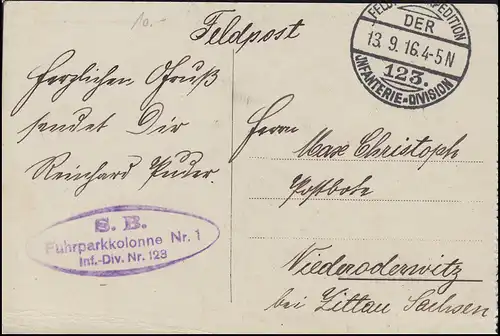 10.-
Feldpost
FELD EXPEDITION
DER
13.9.16.4-5N
123.
INFANTERIE-DIVISION
Herzlichen Gruß
sendet Dir
Reinhard Puder.
Herrn
Max Christoph
Postbote
Niederoderwitz
bei Zittau Sachsen
S. B.
Fuhrparkkolonne Nr. 1
Inf.-Div. Nr. 123